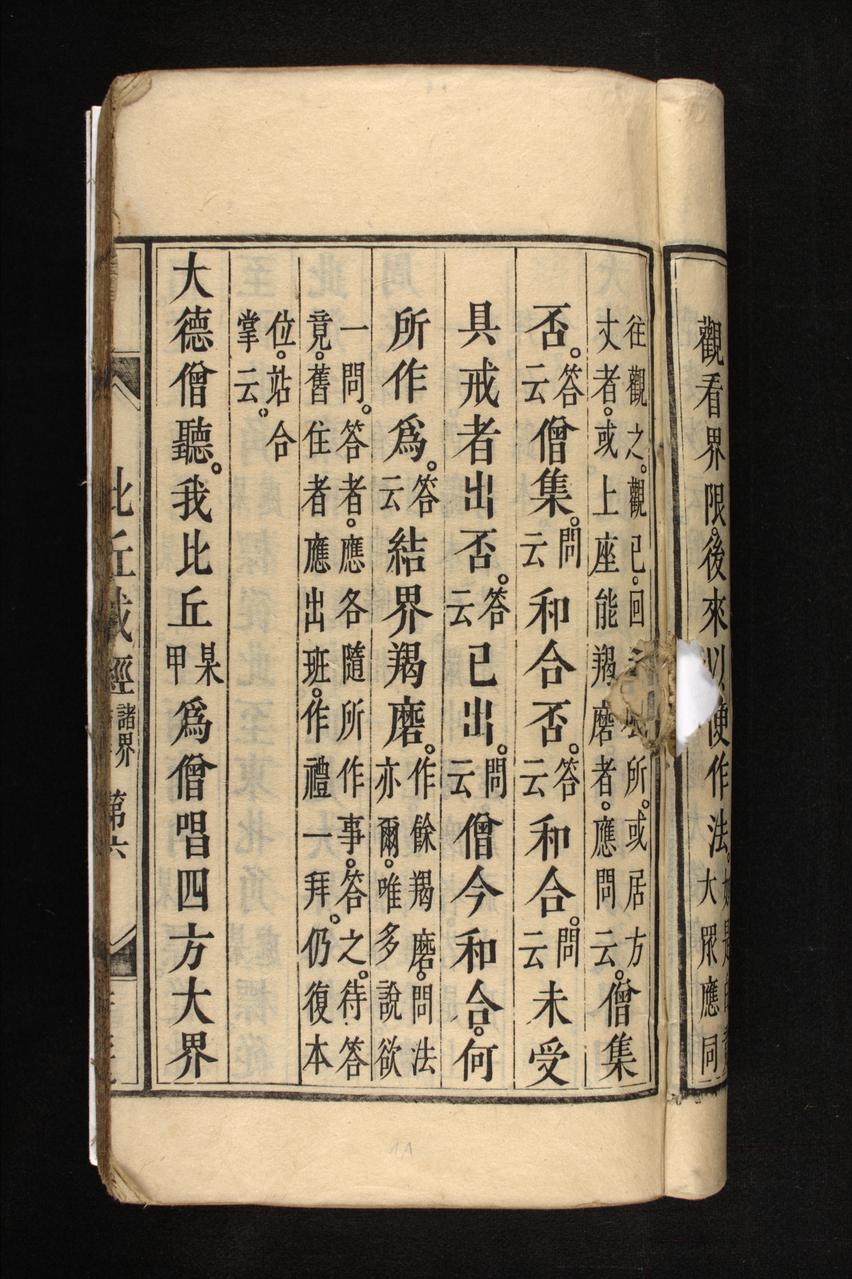 觀看界限。後來以便作法。大眾應同
往觀之。觀已。回所。或居方丈者。或上座能羯磨者。應問云。僧集
否。答云僧集。問云和合否。答云和合。問云未受
具戒者出否。答云已出。問云僧今和合。何
所作爲。答云結界羯磨。作餘羯磨。問法亦爾。唯多說欲
一問。答者。應各隨所作事。答之。待答竟。舊住者應出班。作禮一拜。仍復本
位。站合掌云。
大德僧聽。我比丘某甲爲僧唱四方大界
比丘戒經 諸界 第六